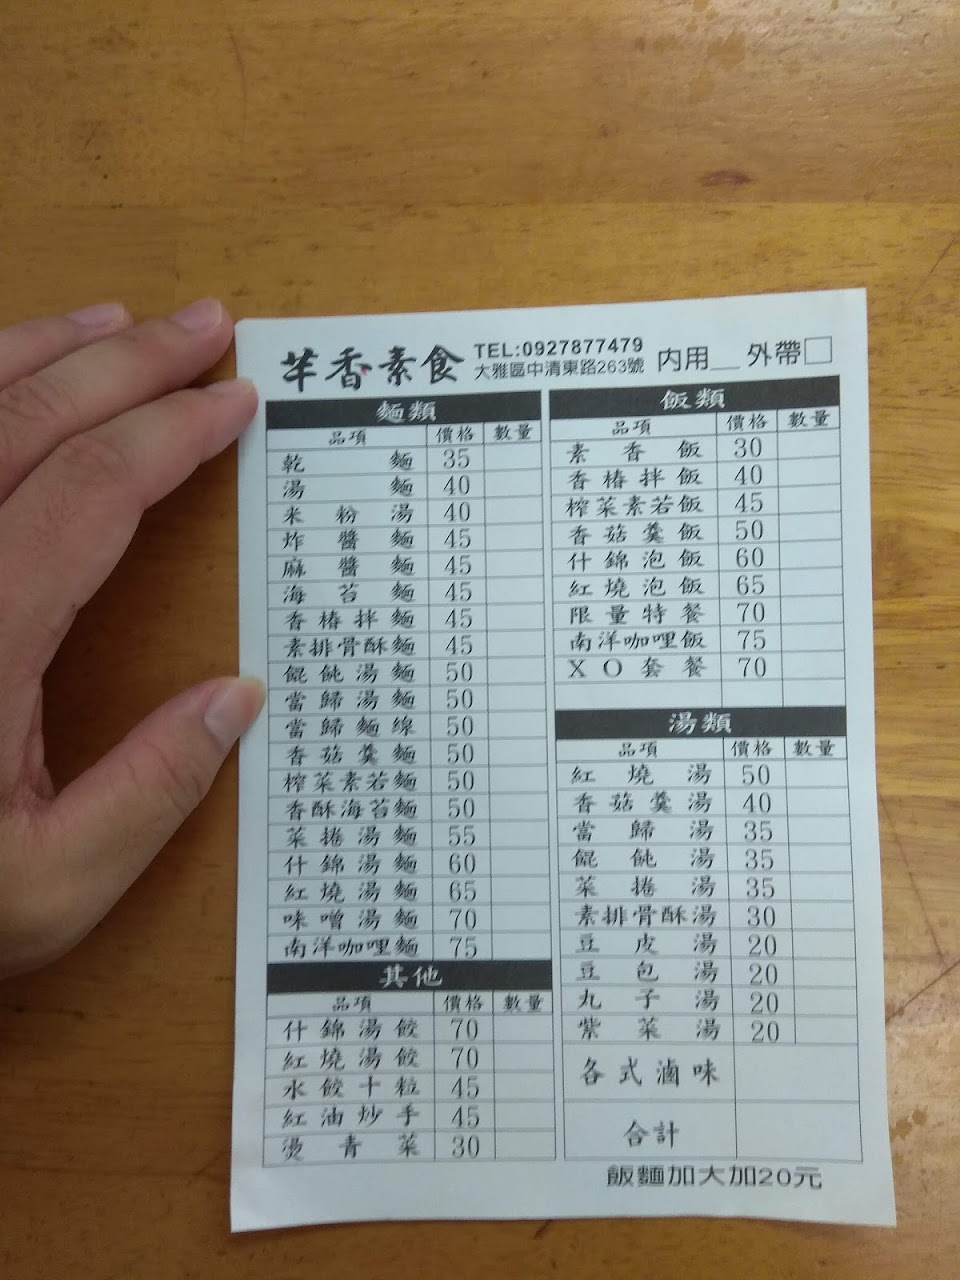 芊香素食 TEL:0927877479 內用__ 外帶□
大雅區中清東路263號
麵類
品項 價格 數量
乾麵 35
湯麵 40
米粉湯 40
炸醬麵 45
麻醬麵 45
海苔麵 45
香椿拌麵 45
素排骨酥麵 45
餛飩湯麵 50
當歸湯麵 50
當歸麵線 50
香菇羹麵 50
榨菜素若麵 50
香酥海苔麵 50
菜捲湯麵 55
什錦湯麵 60
紅燒湯麵 65
味噌湯麵 70
南洋咖哩麵 75
其他
品項 價格 數量
什錦湯餃 70
紅燒湯餃 70
水餃十粒 45
紅油炒手 45
燙青菜 30
飯類
品項 價格 數量
素香飯 30
香椿拌飯 40
榨菜素若飯 45
香菇羹飯 50
什錦泡飯 60
紅燒泡飯 65
限量特餐 70
南洋咖哩飯 75
XO套餐 70
湯類
品項 價格 數量
紅燒湯 50
香菇羹湯 40
當歸湯 35
餛飩湯 35
菜捲湯 35
素排骨酥湯 30
豆皮湯 20
豆包湯 20
丸子湯 20
紫菜湯 20
各式滷味
合計
飯麵加大加20元